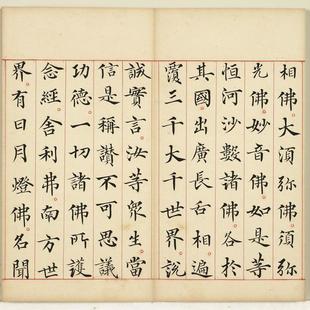 相佛大湏弥佛湏弥
光佛妙音佛如是等
恒河沙數諸佛各於
其國出廣長舌相遍
覆三千大千世界說
誠實言汝等眾生當
信是稱讚不可思議
功德一切諸佛所護
念經舍利弗南方世
界有日月燈佛名聞